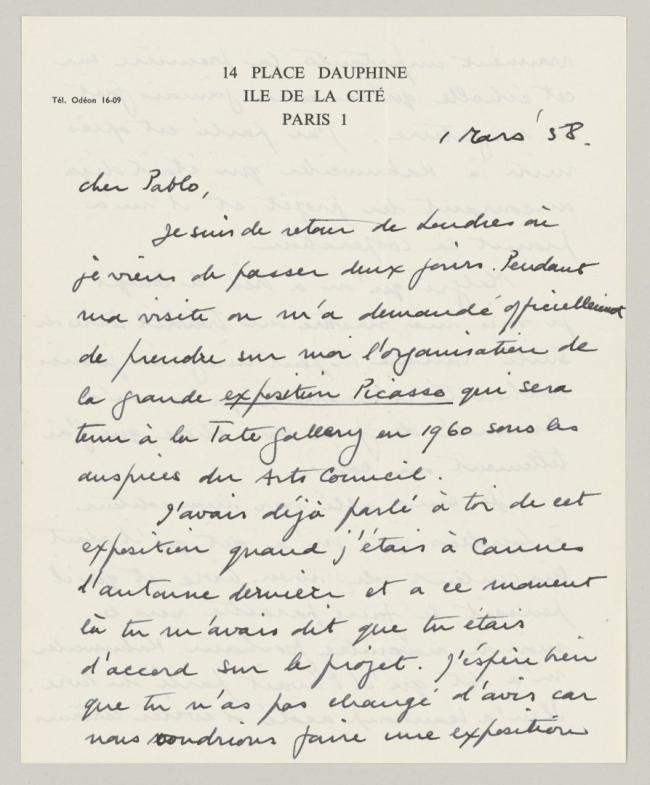 14 PLACE DAUPHINE
Tél. Odéon 16-09
ILE DE LA CITÉ
PARIS 1
1 Mars '58.
cher Pablo,
Je suis de retour de Londres où
je viens de passer deux jours. Pendant
ma visite on m'a demandé officiellement
de prendre sur moi l'organisation de
la grande exposition Picasso qui sera
tenu à la Tate Gallery en 1960 sous les
auspices du Arts Council.
J'avais déjà parlé à toi de cet
exposition quand j'étais à Cannes
l'automne dernière et a ce moment
là tu m'avais dit que tu étais
d'accord sur le projet. J'éspère bien
que tu n'as pas changé d'avis car
nous voudrions faire une exposition